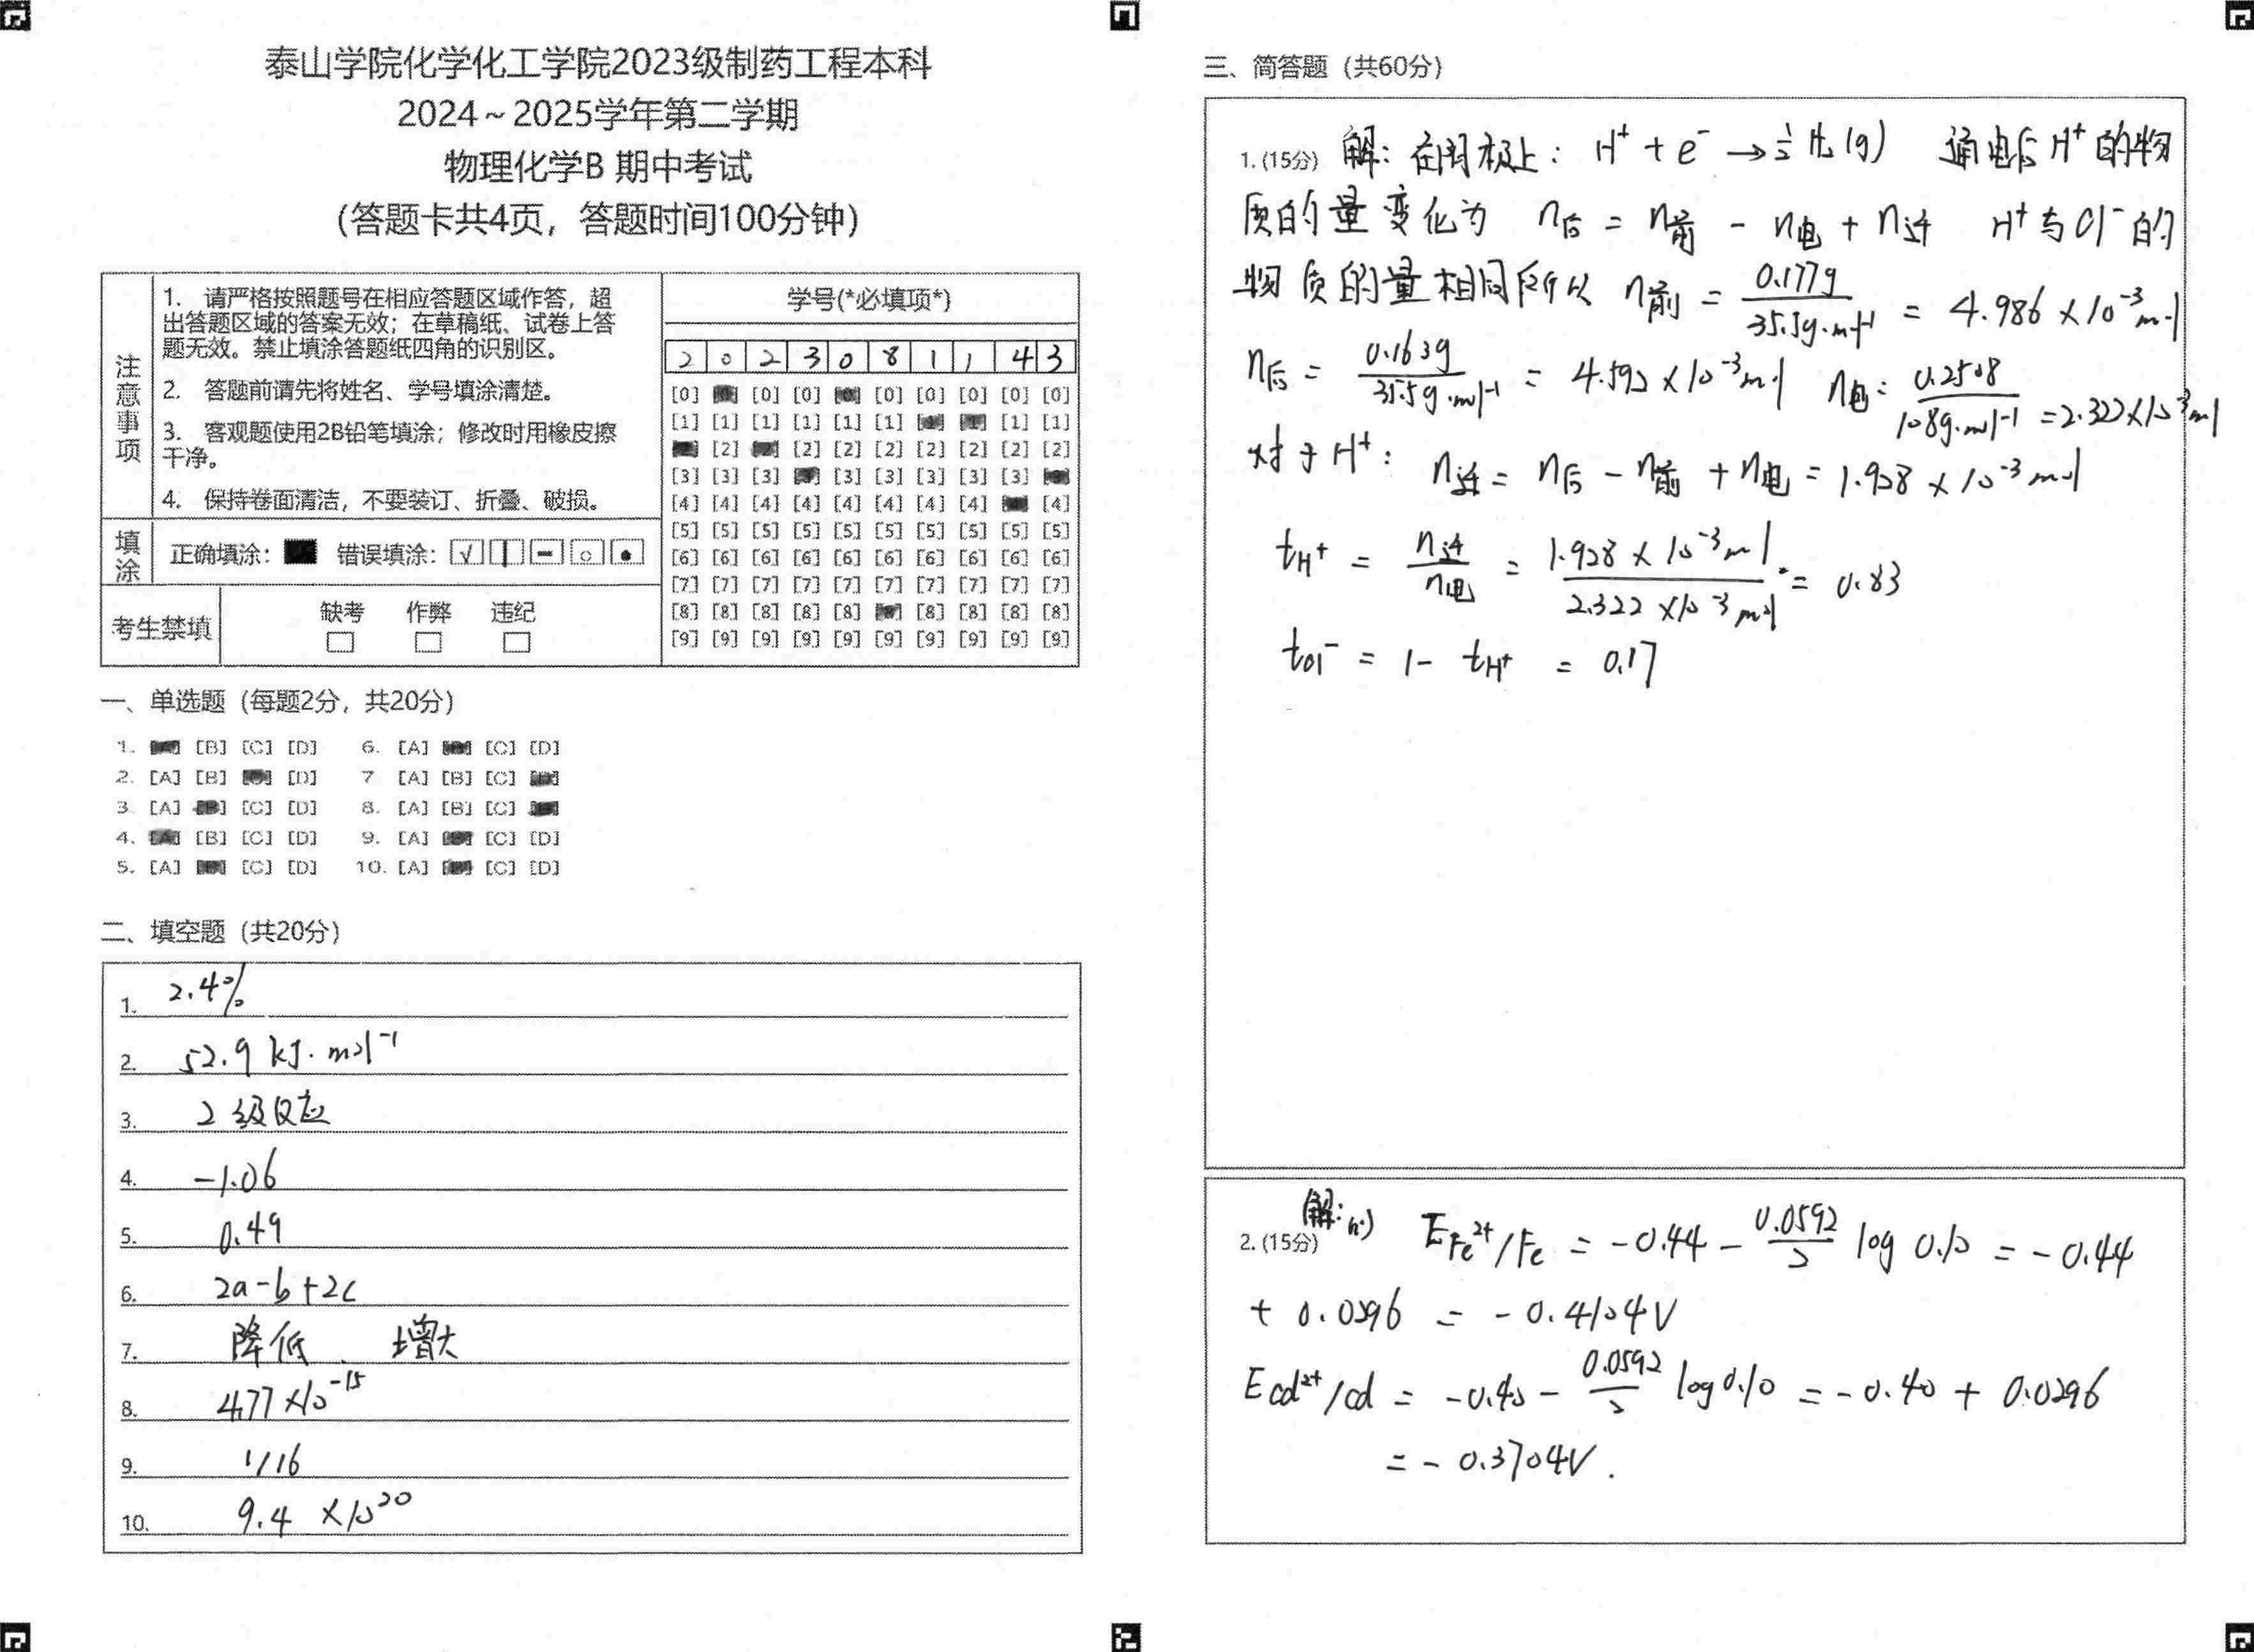 泰山学院化学化工学院2023级制药工程本科
2024～2025学年第二学期
物理化学B 期中考试
（答题卡共4页，答题时间100分钟）
注意事项
1. 请严格按照题号在相应答题区域作答，超
出答题区域的答案无效；在草稿纸、试卷上答
题无效。禁止填涂答题纸四角的识别区。
2. 答题前请先将姓名、学号填涂清楚。
3. 客观题使用2B铅笔填涂；修改时用橡皮擦
干净。
4. 保持卷面清洁，不要装订、折叠、破损。
填涂
正确填涂： 错误填涂：
考生禁填
缺考 作弊 违纪
学号(*必填项*)
2 0 2 3 0 8 1 1 4 3
[0] [0] [0] [0] [0] [0] [0] [0]
[1] [1] [1] [1] [1] [1] [1] [1]
[2] [2] [2] [2] [2] [2] [2] [2]
[3] [3] [3] [3] [3] [3] [3] [3]
[4] [4] [4] [4] [4] [4] [4] [4] [4]
[5] [5] [5] [5] [5] [5] [5] [5] [5] [5]
[6] [6] [6] [6] [6] [6] [6] [6] [6] [6]
[7] [7] [7] [7] [7] [7] [7] [7] [7] [7]
[8] [8] [8] [8] [8] [8] [8] [8] [8]
[9] [9] [9] [9] [9] [9] [9] [9] [9] [9]
一、单选题（每题2分，共20分）
1. [B] [C] [D] 6. [A] [C] [D]
2. [A] [B] [D] 7 [A] [B] [C]
3 [A] [C] [D] 8. [A] [B] [C]
4. [B] [C] [D] 9. [A] [C] [D]
5. [A] [C] [D] 10. [A] [C] [D]
二、填空题（共20分）
1. 2.4%
2. 52.9 kJ·mol⁻¹
3. 2级反应
4. -1.06
5. 0.49
6. 2a-b+2c
7. 降低、增大
8. 4.77×10⁻¹⁵
9. 1/16
10. 9.4 ×10²⁰
三、简答题（共60分）
1. (15分) 解：在阴极上： H⁺ + e⁻ → ½ H₂(g) 通电后H⁺的物
质的量变化为 n后 = n前 - n电 + n迁 H⁺与Cl⁻的
物质的量相同所以 n前 = 0.177g / 35.5g·mol⁻¹ = 4.986×10⁻³mol
n后 = 0.163g / 35.5g·mol⁻¹ = 4.592×10⁻³mol n电 = 0.2508 / 108g·mol⁻¹ = 2.322×10⁻³mol
对于H⁺： n迁 = n后 - n前 + n电 = 1.928×10⁻³mol
tH⁺ = n迁 / n电 = 1.928×10⁻³mol / 2.322×10⁻³mol = 0.83
tCl⁻ = 1- tH⁺ = 0.17
2. (15分) 解： (1) E Fe²⁺/Fe = -0.44 - 0.0592/2 log 0.10 = -0.44
+ 0.0296 = -0.4104V
E cd²⁺/cd = -0.40 - 0.0592/2 log 0.10 = -0.40 + 0.0296
= -0.3704V.